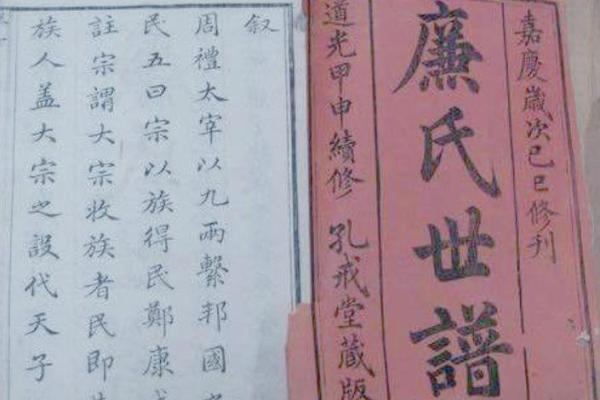 嘉慶歲次己巳修刊
廉氏世譜
道光甲申續修 孔戒堂藏版
叙
周禮太宰以九兩繫邦國
民五曰宗以族得民鄭康
註宗謂大宗收族者民即
族人盖大宗之設代天子